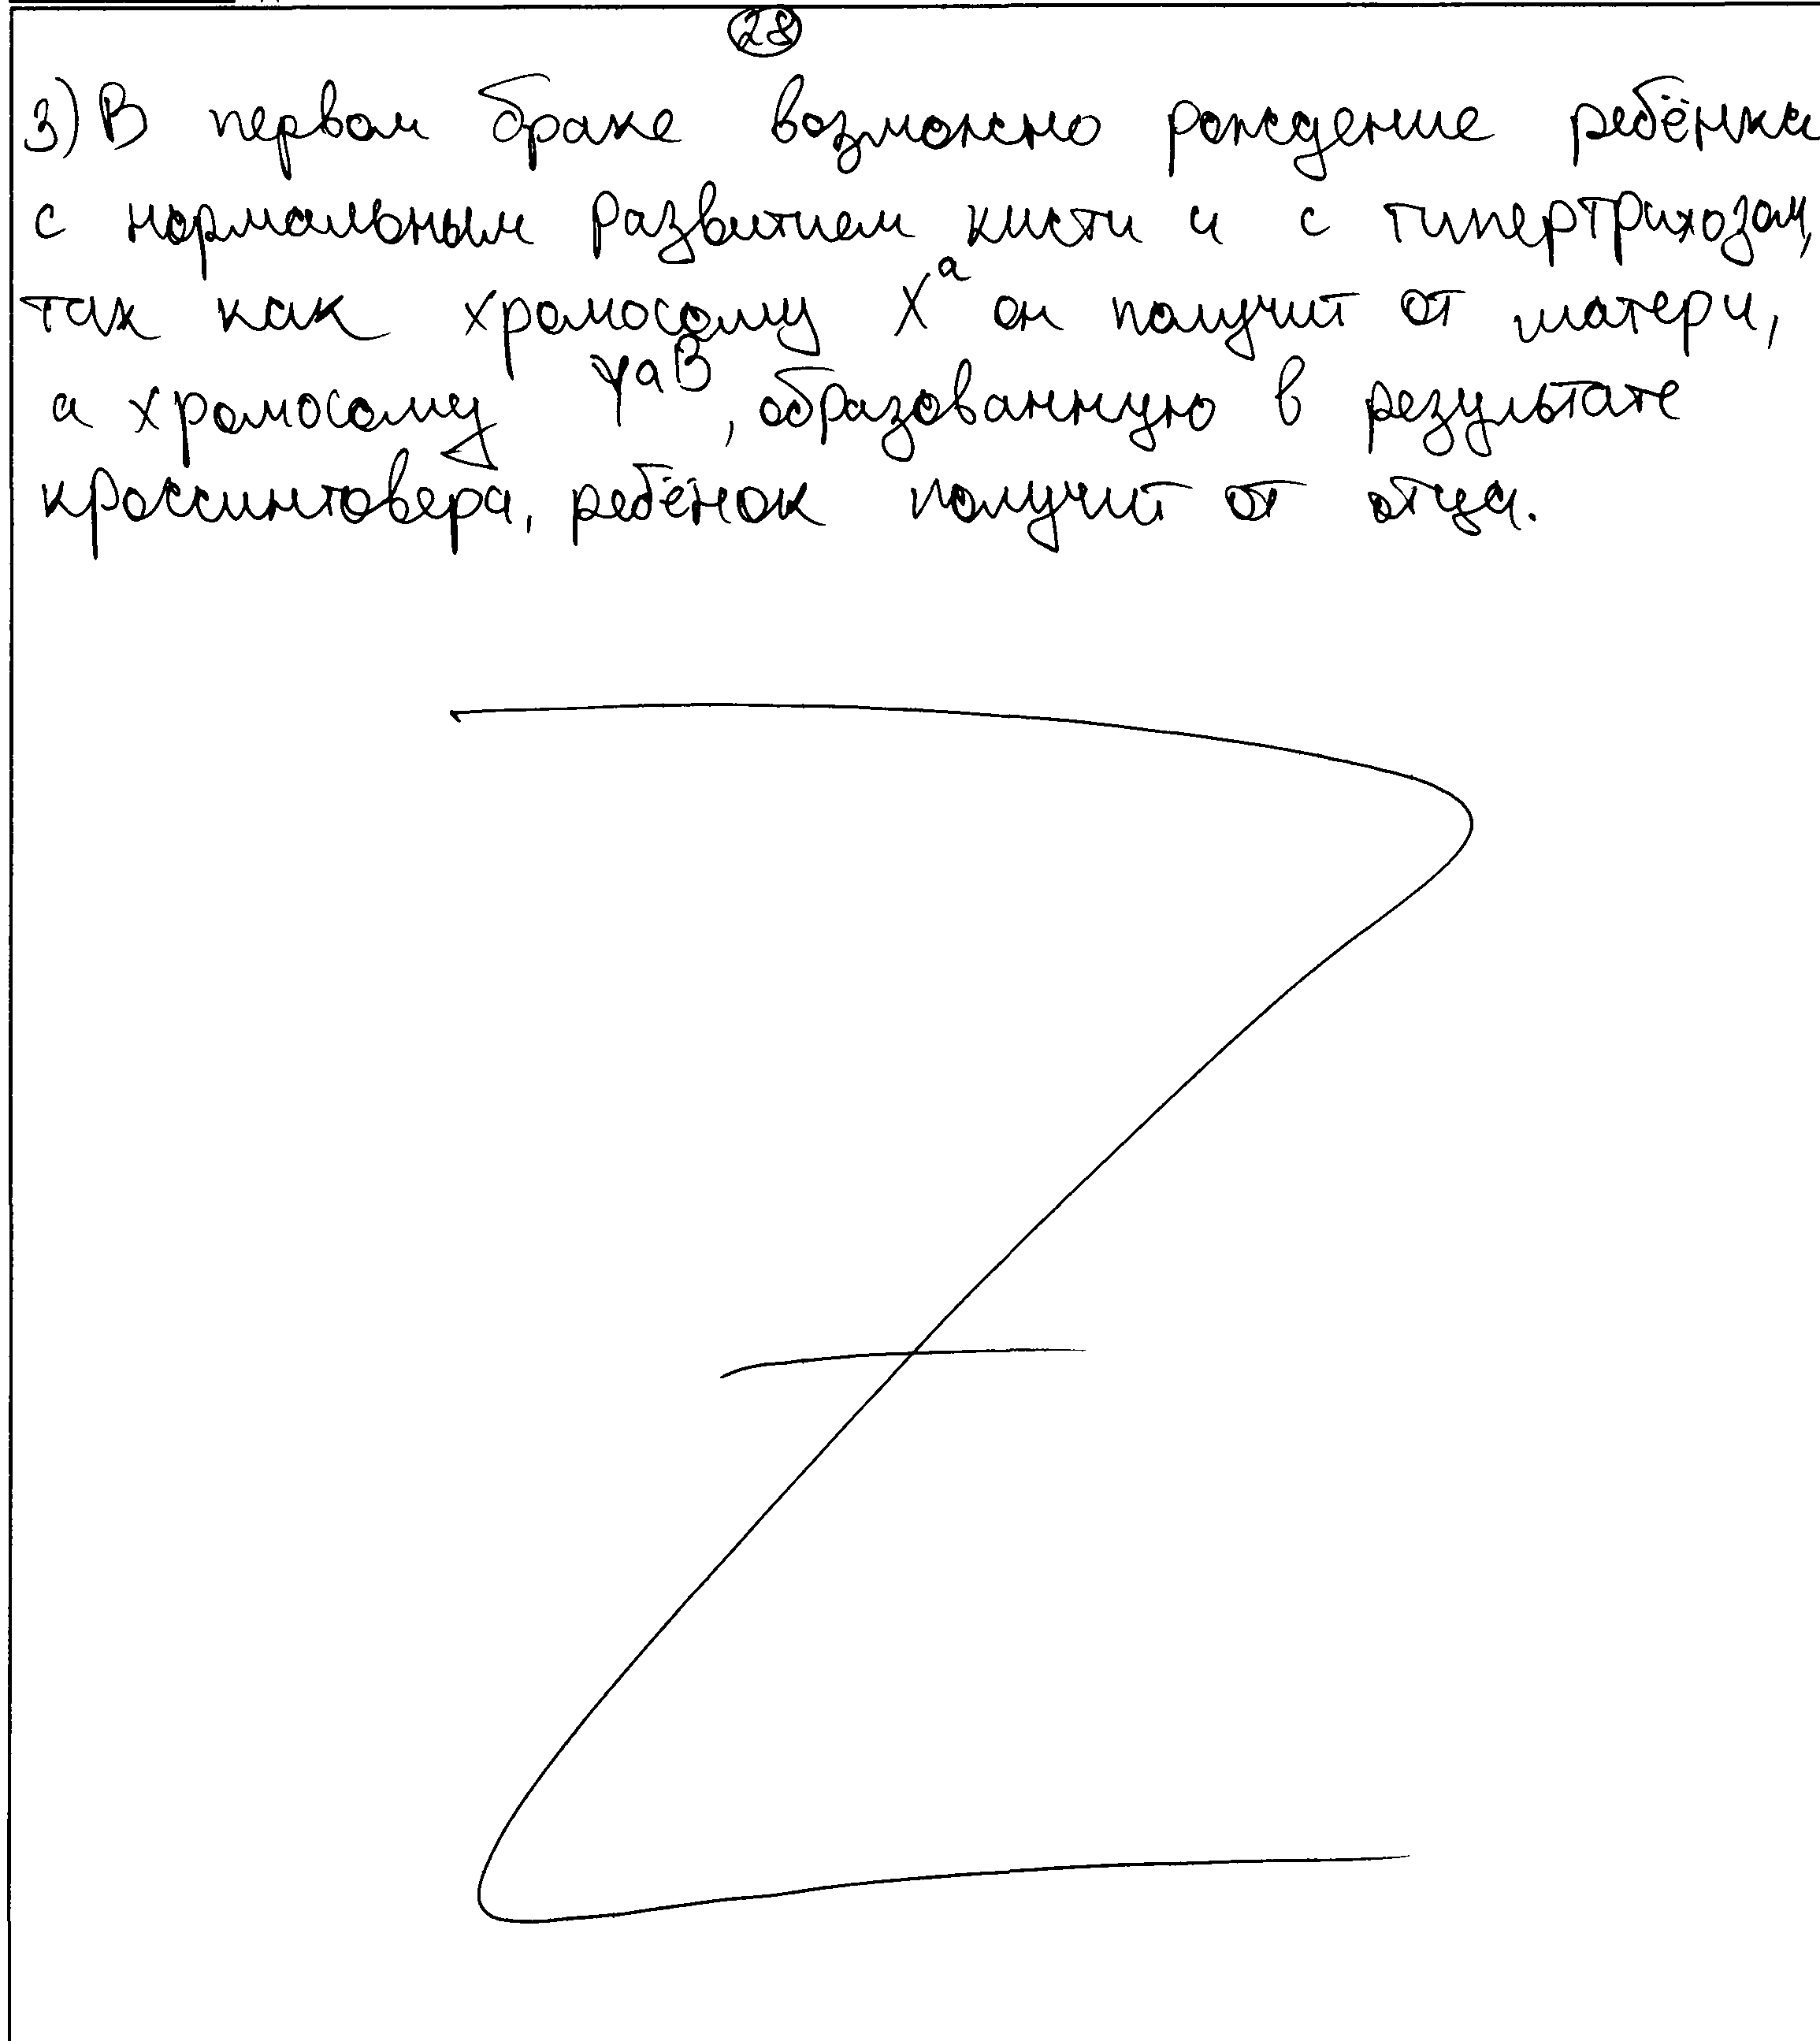 28
3) В первом браке возможно рождение ребёнка
с нормальным развитием кисти и с гипертрихозом,
так как хромосому Xᵃ он получит от матери,
а хромосому Yᵃᴮ, образованную в результате
кроссинговера, ребёнок получит от отца.